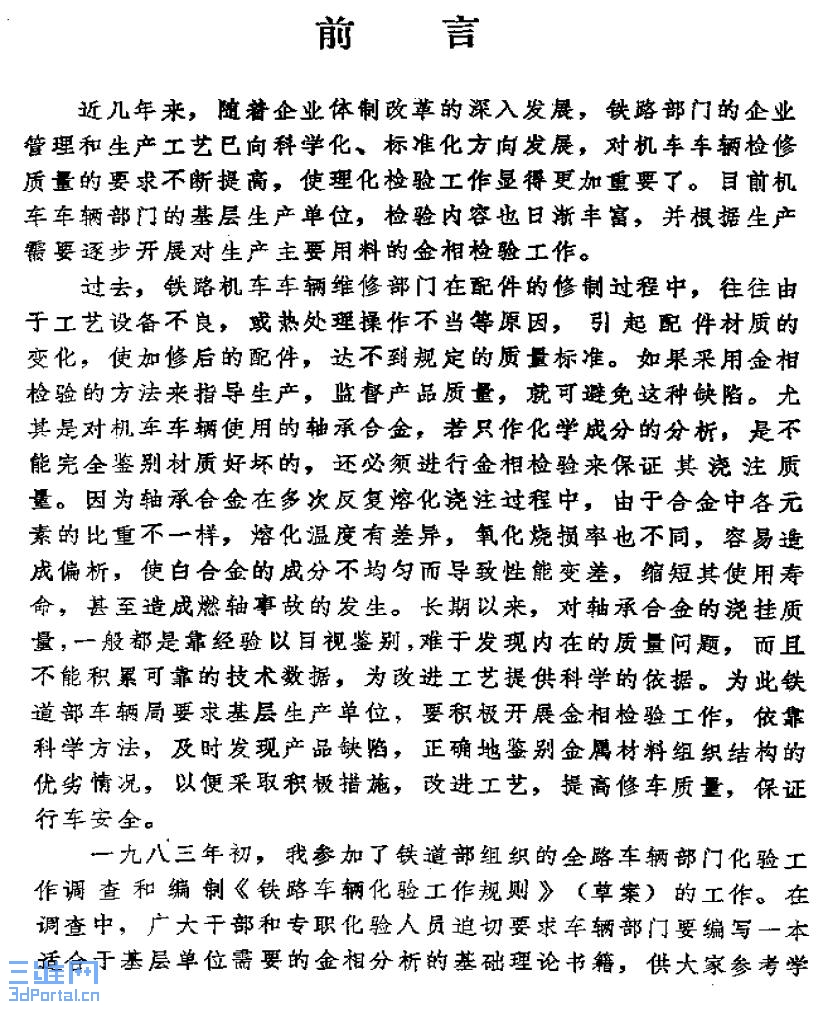 前 言
近几年来，随着企业体制改革的深入发展，铁路部门的企业
管理和生产工艺已向科学化、标准化方向发展，对机车车辆检修
质量的要求不断提高，使理化检验工作显得更加重要了。目前机
车车辆部门的基层生产单位，检验内容也日渐丰富，并根据生产
需要逐步开展对生产主要用料的金相检验工作。
过去，铁路机车车辆维修部门在配件的修制过程中，往往由
于工艺设备不良，或热处理操作不当等原因，引起配件材质的
变化，使加修后的配件，达不到规定的质量标准。如果采用金相
检验的方法来指导生产，监督产品质量，就可避免这种缺陷。尤
其是对机车车辆使用的轴承合金，若只作化学成分的分析，是不
能完全鉴别材质好坏的，还必须进行金相检验来保证其浇注质
量。因为轴承合金在多次反复熔化浇注过程中，由于合金中各元
素的比重不一样，熔化温度有差异，氧化烧损率也不同，容易造
成偏析，使白合金的成分不均匀而导致性能变差，缩短其使用寿
命，甚至造成燃轴事故的发生。长期以来，对轴承合金的浇挂质
量，一般都是靠经验以目视鉴别，难于发现内在的质量问题，而且
不能积累可靠的技术数据，为改进工艺提供科学的依据。为此铁
道部车辆局要求基层生产单位，要积极开展金相检验工作，依靠
科学方法，及时发现产品缺陷，正确地鉴别金属材料组织结构的
优劣情况，以便采取积极措施，改进工艺，提高修车质量，保证
行车安全。
一九八三年初，我参加了铁道部组织的全路车辆部门化验工
作调查和编制《铁路车辆化验工作规则》（草案）的工作。在
调查中，广大干部和专职化验人员迫切要求车辆部门要编写一本
适合于基层单位需要的金相分析的基础理论书籍，供大家参考学
三维网
3dPortal.cn